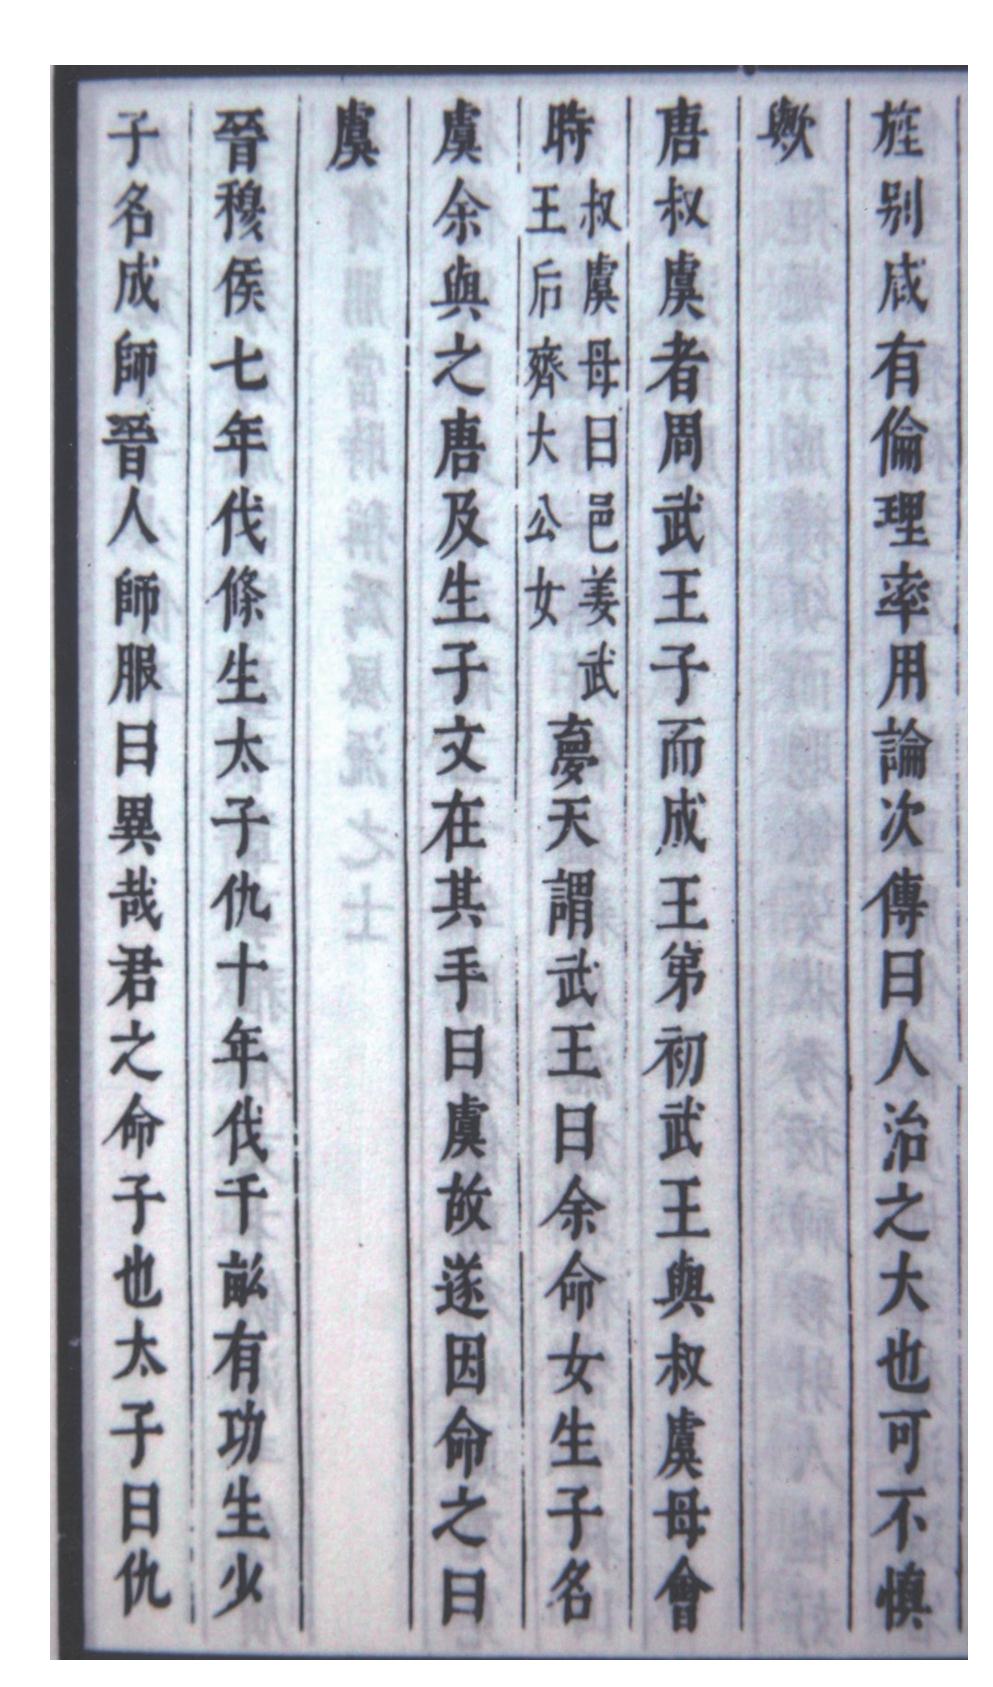 旌别咸有倫理率用論次傳曰人治之大也可不慎
歟
唐叔虞者周武王子而成王第初武王與叔虞母會
時叔虞母曰邑姜武王后齊大公女夢天謂武王曰余命女生子名
虞余與之唐及生子文在其手曰虞故遂因命之曰
虞
晉穆侯七年伐條生太子仇十年伐千畝有功生少
子名成師晉人師服曰異哉君之命子也太子曰仇